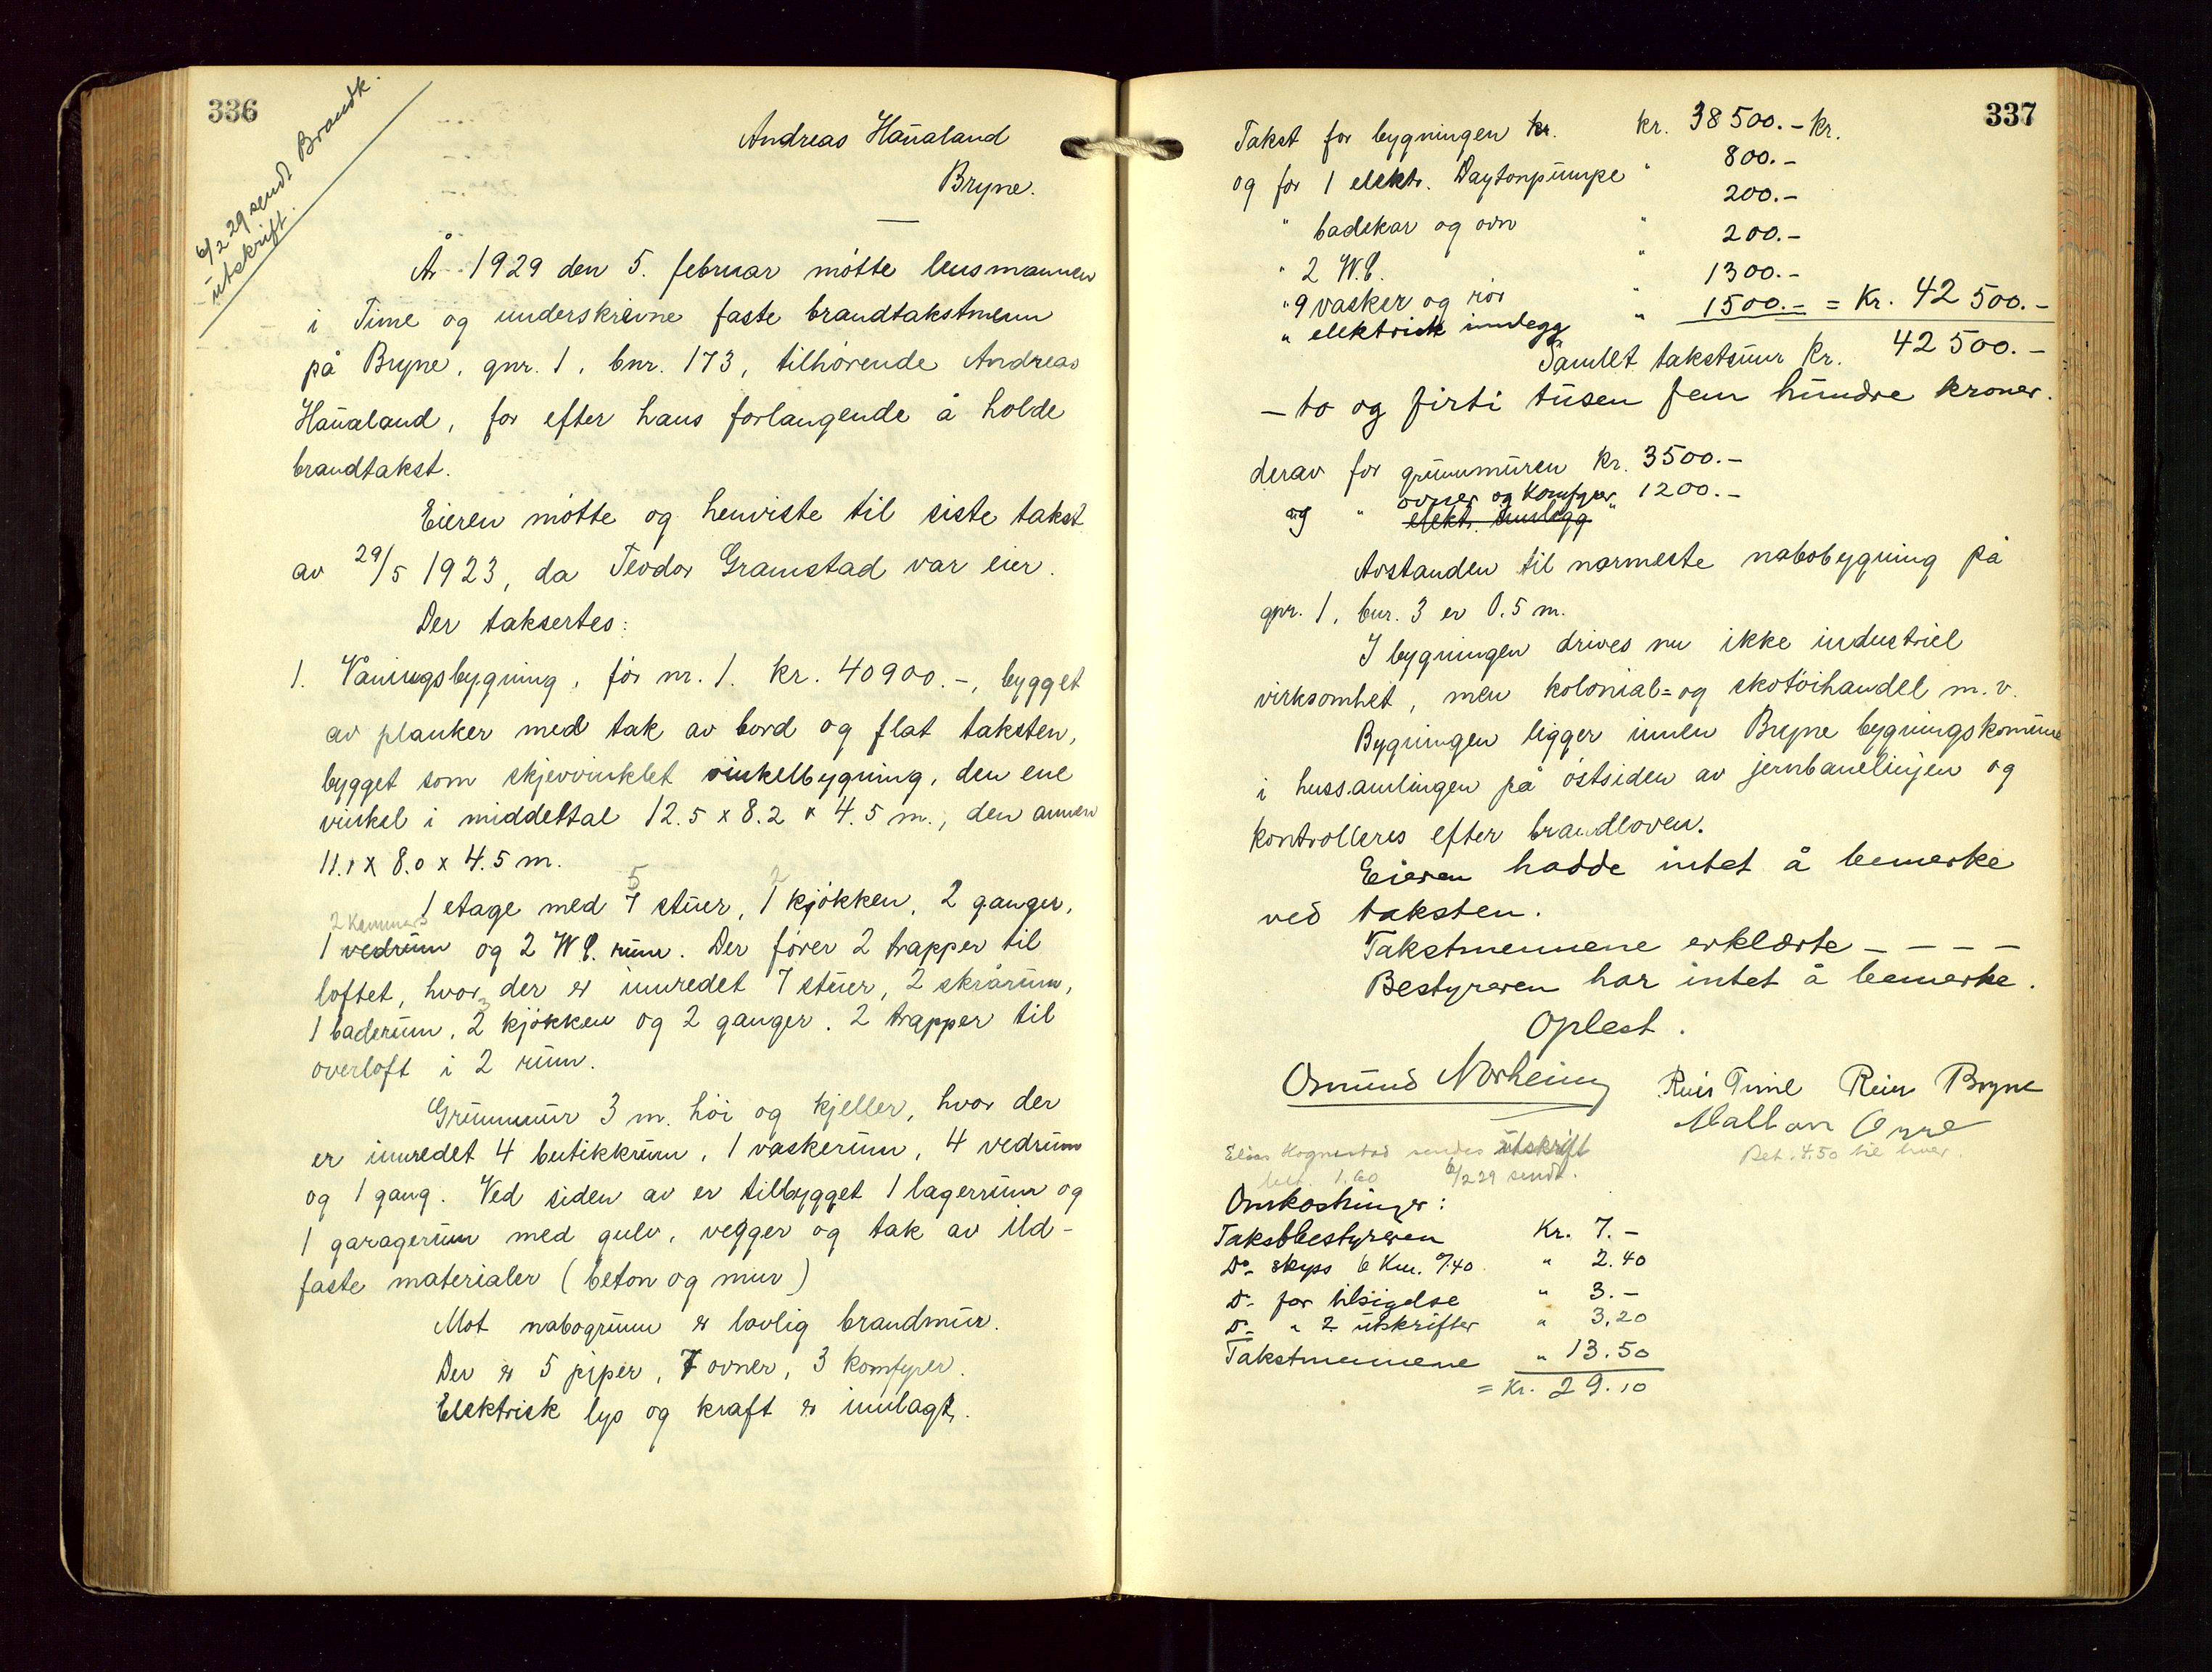 336
6/2 29 sendt Brandk.
utskrift.
Andreas Haualand
Bryne.
År 1929 den 5. februar møtte lensmannen
i Time og underskrevne faste brandtakstmenn
på Bryne, gnr. 1, bnr. 173, tilhørende Andreas
Haualand, for efter hans forlangende å holde
brandtakst.
Eieren møtte og henviste til siste takst
av 29/5 1923, da Teodor Gramstad var eier.
Der taksertes:
1. Vaningsbygning, før nr. 1. kr. 40900.-, bygget
av planker med tak av bord og flat taksten,
bygget som skjevvinklet vinkelbygning, den ene
vinkel i middeltal 12.5 x 8.2 x 4.5 m., den annen
11.1 x 8.0 x 4.5 m.
5 2
1 etage med 7 stuer, 1 kjøkken, 2 ganger,
2 kammers
1 vedrum og 2 W.C. rum. Der fører 2 trapper til
loftet, hvor der er innredet 7 stuer, 2 skrårum,
1 baderum, 2 kjøkken og 2 ganger. 2 trapper til
overloft i 2 rum.
Grunnmur 3 m. høi og kjeller, hvor der
er innredet 4 butikkrum, 1 vaskerum, 4 vedrum
og 1 gang. Ved siden av er tilbygget 1 lagerrum og
1 garagerum med gulv, vegger og tak av ild-
faste materialer (beton og mur)
Mot nabogrunn er lovlig brandmur.
Der er 5 piper, 7 ovner, 3 komfyrer.
Elektrisk lys og kraft er innlagt.
337
Takst for bygningen kr. kr. 38500.- kr.
og for 1 elektr. Daytonpumpe " 800.-
" badekar og ovn " 200.-
" 2 W.C. " 200.-
" 9 vasker og rør " 1300.-
" elektrisk innlegg " 1500.- = Kr. 42500.-
Samlet takstsum kr. 42500.-
- to og firti tusen fem hundre kroner.
derav for grunnmuren kr. 3500.-
og " ovner og komfyrer " 1200.-
elekt. innlegg
Avstanden til nærmeste nabobygning på
gnr. 1, bnr. 3 er 0.5 m.
I bygningen drives nu ikke industriel
virksomhet, men kolonial= og skotøihandel m. v.
Bygningen ligger innen Bryne bygningskomune
i hussamlingen på østsiden av jernbanelinjen og
kontrolleres efter brandloven.
Eieren hadde intet å bemerke
ved taksten.
Takstmennene erklærte - - - -
Bestyreren har intet å bemerke.
Oplest.
Osmund Norheim Reier Time Reier Bryne
Elias Hognestad sendes utskrift
bet. 1.60 6/2 29 sendt.
Bet. 4.50 til hver.
Omkostninger:
Takstbestyreren Kr. 7.-
Do- skyss 6 Km. 0/40 " 2.40
Do- for tilsigelse " 3.-
Do- " 2 utskrifter " 3,20
Takstmennene " 13.50
= Kr. 29.10